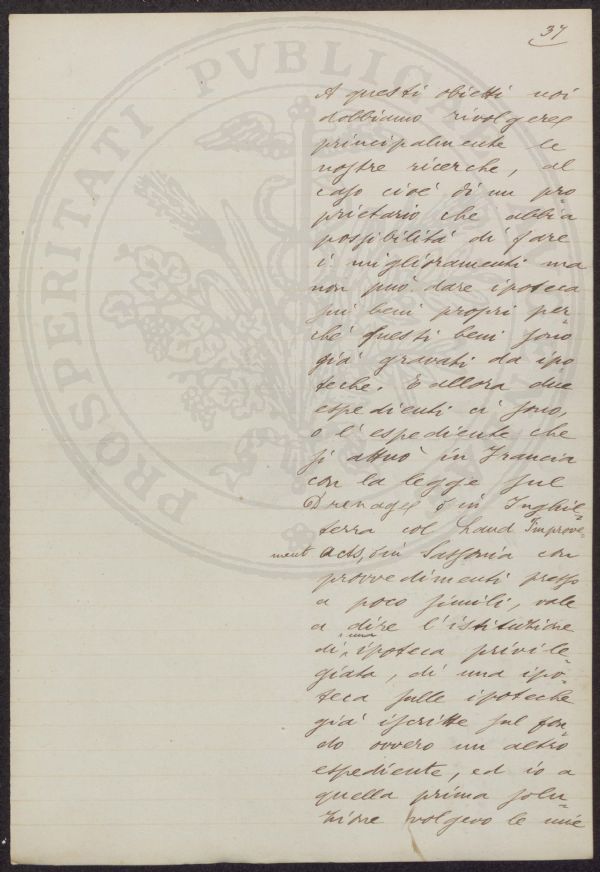 37
A questi obietti noi
dobbiamo rivolgere
principalmente le
nostre ricerche, al
caso cioè di un pro=
prietario che abbia
possibilità di fare
i miglioramenti ma
non può dare ipoteca
sui beni propri per=
chè questi beni sono
già gravati da ipo
teche. E allora due
espedienti ci sono,
o l'espediente che
si attuò in Francia
con la legge sul
Drenage o in Inghil=
terra col Land Improve=
ment Acts, o in Sassonia con
provvedimenti presso
a poco simili, vale
a dire l'istituzione
di una ipoteca privile=
giata, di una ipo=
teca sulle ipoteche
già iscritte sul fon=
do ovvero un altro
espediente, ed io a
quella prima solu=
zione volgevo le mie
PROSPERITATI PUBLICAE